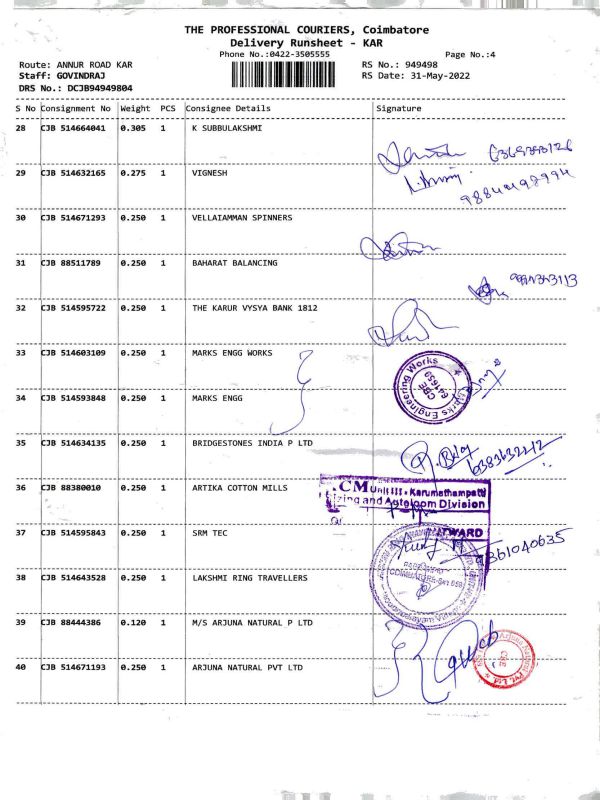 THE PROFESSIONAL COURIERS, Coimbatore
Delivery Runsheet - KAR
Phone No.:0422-3505555 Page No.:4
Route: ANNUR ROAD KAR RS No.: 949498
Staff: GOVINDRAJ RS Date: 31-May-2022
DRS No.: DCJB94949804
S No Consignment No Weight PCS Consignee Details Signature
28 CJB 514664041 0.305 1 K SUBBULAKSHMI
29 CJB 514632165 0.275 1 VIGNESH
30 CJB 514671293 0.250 1 VELLAIAMMAN SPINNERS
31 CJB 88511789 0.250 1 BAHARAT BALANCING
32 CJB 514595722 0.250 1 THE KARUR VYSYA BANK 1812
33 CJB 514603109 0.250 1 MARKS ENGG WORKS
Marks Engineering Works
CBE
641659
34 CJB 514593848 0.250 1 MARKS ENGG
35 CJB 514634135 0.250 1 BRIDGESTONES INDIA P LTD
36 CJB 88380010 0.250 1 ARTIKA COTTON MILLS
CM Unit III, Karumathampatti
Sizing and Autoloom Division
37 CJB 514595843 0.250 1 SRM TEC
9361040635
38 CJB 514643528 0.250 1 LAKSHMI RING TRAVELLERS
39 CJB 88444386 0.120 1 M/S ARJUNA NATURAL P LTD
40 CJB 514671193 0.250 1 ARJUNA NATURAL PVT LTD
Arjuna Natural Pvt. Ltd.
CBE